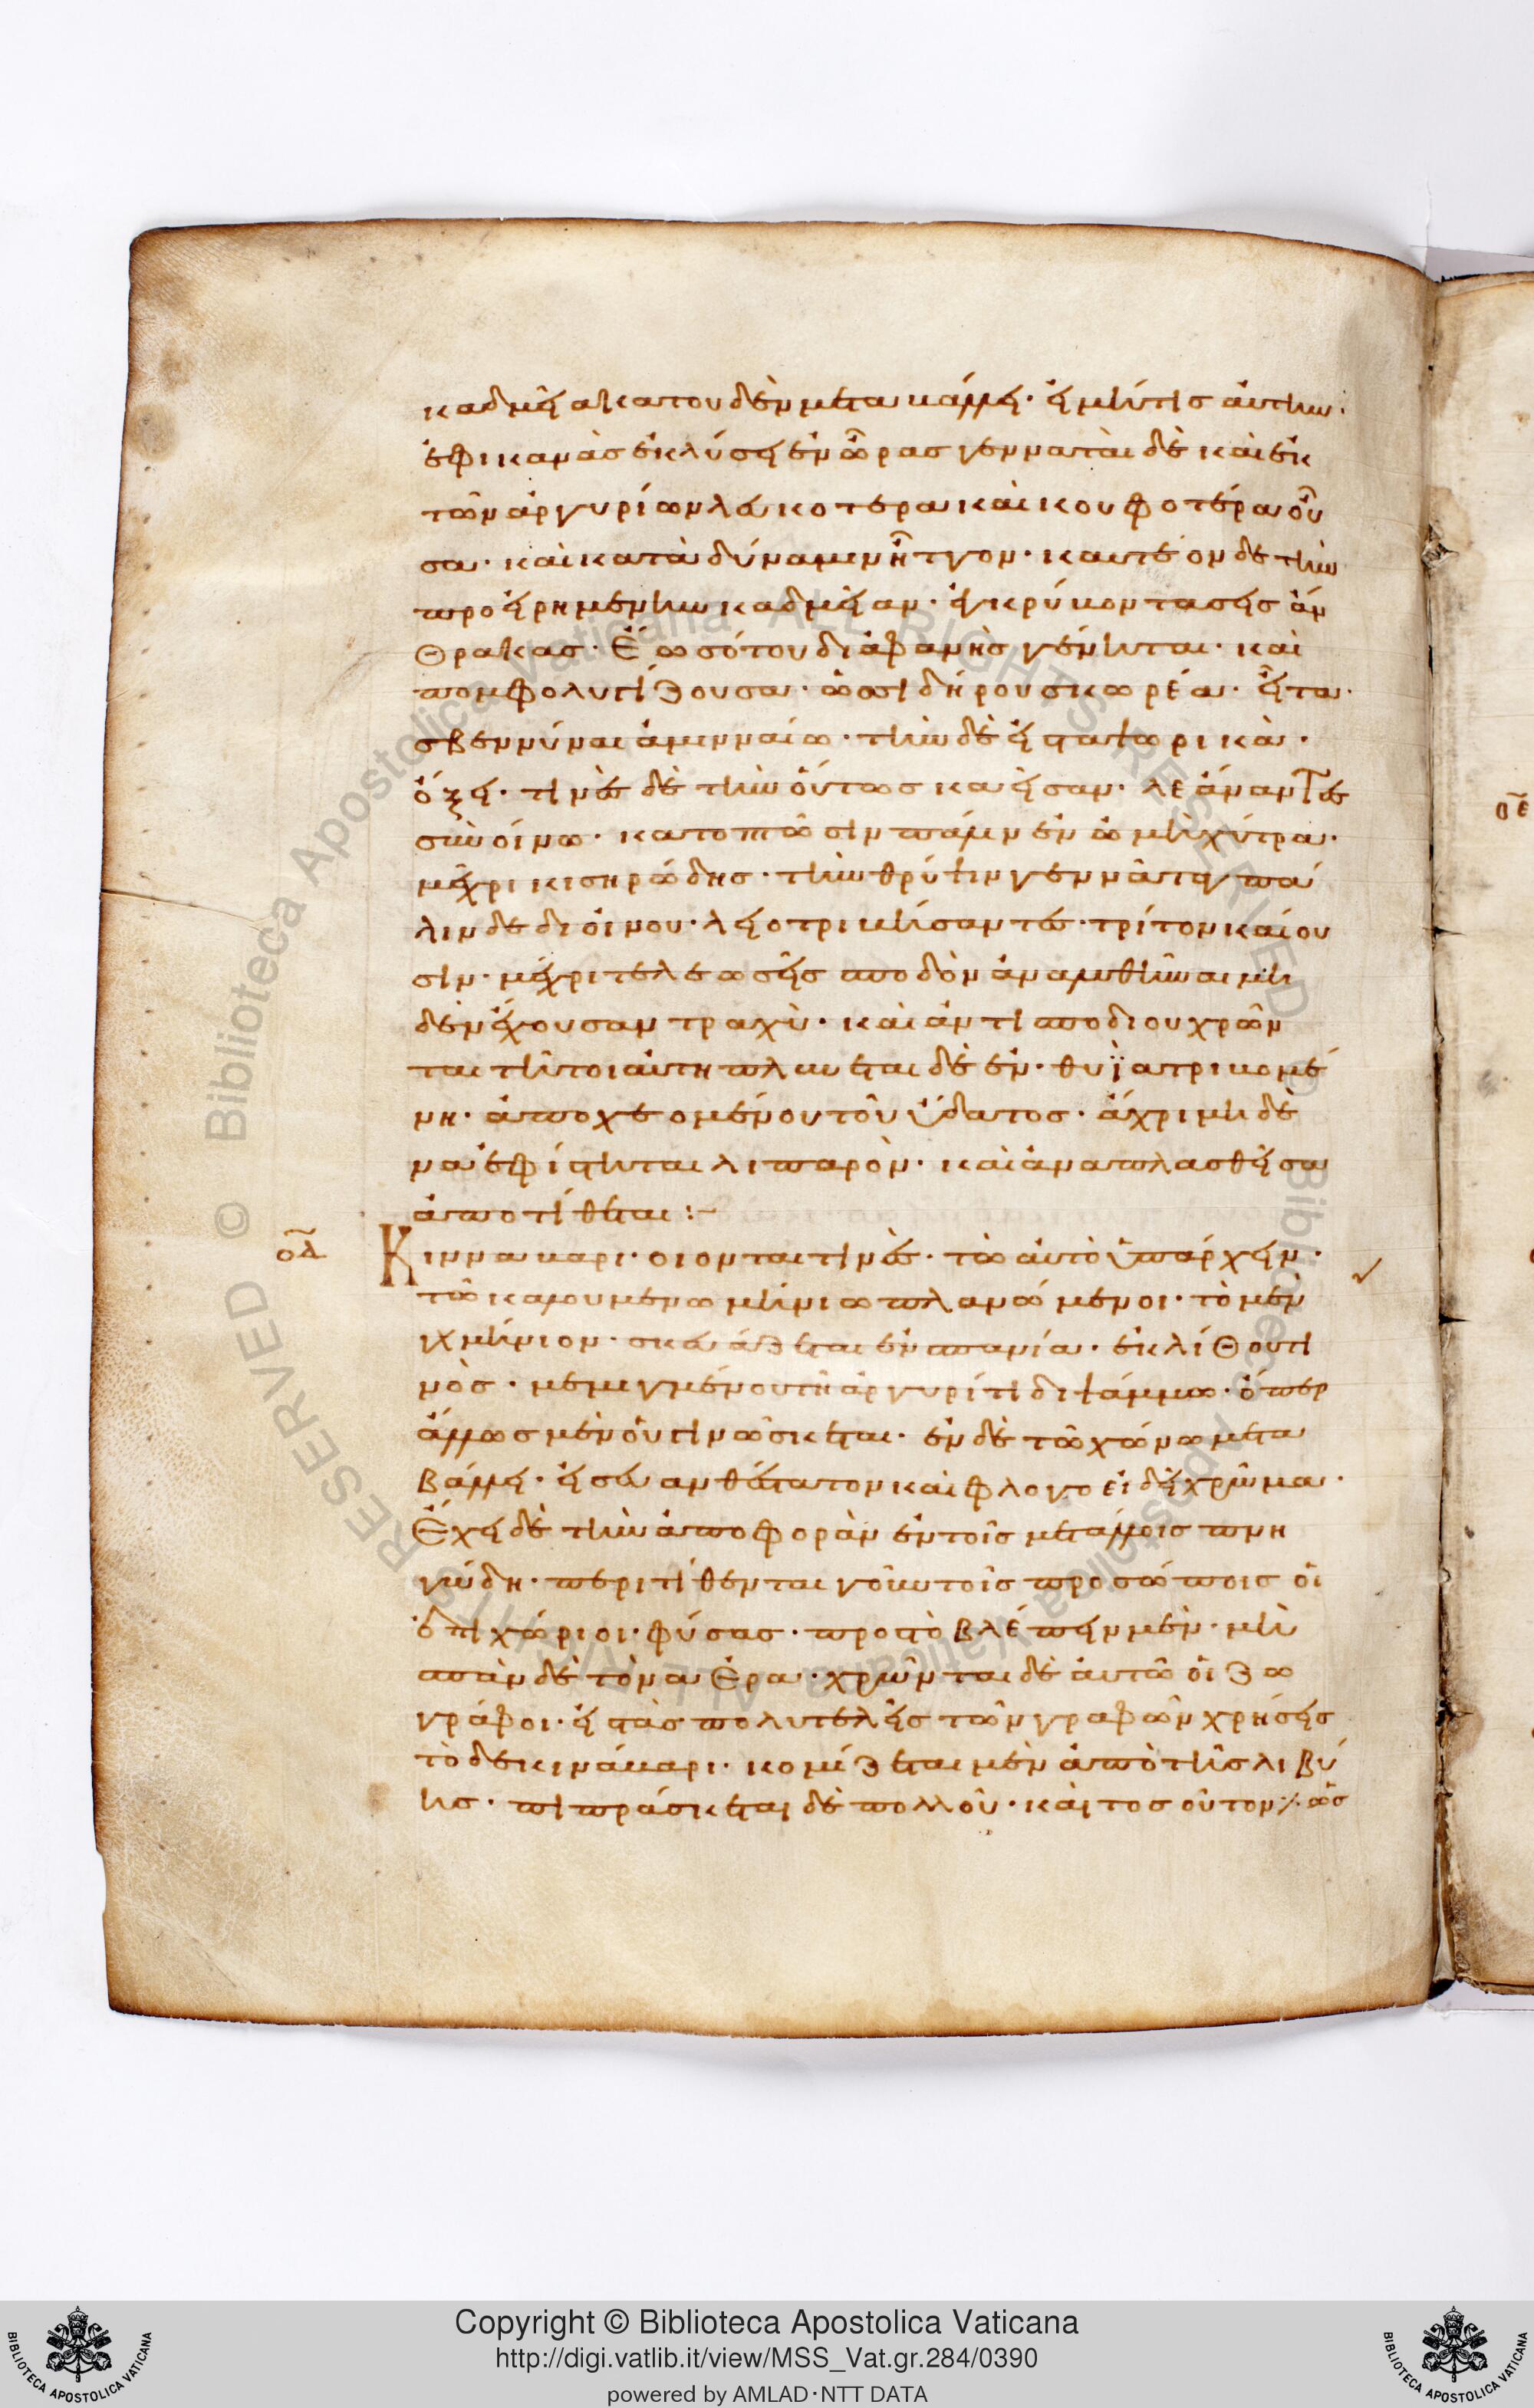 καδμείαι κατουδὲν μεταβάλλει· εἰ μήτις αὐτὴν·
ἐφικανὰς ἐκλύσει ἐν ὥρας γεννᾶται δὲ καὶ ἐκ
τῶν ἀργυρίων λευκοτέρα καὶ κουφοτέρα οὖ
σα· καὶ κατὰ δύναμιν ἧττον· καυτέον δὲ τὴν
προειρημένην καδμείαν· ἐγκρύβοντας εἰς ἄν
θρακας· ἕως ὅτου διαφανὴς γένηται· καὶ
πομφολυγίζουσα· ὡς σιδήρου σκωρέα· εἶτα·
σβεννύναι ἀμινναίω· τὴν δὲ εἰς τὰ ψωρικὰ·
ὄξει· τινὲς δὲ τὴν οὕτως καεῖσαν· λεάναντες
σὺν οἴνω· κατοπτῶσιν πάλιν ἐν ὠμῆ χύτρα·
μέχρι κισηρώδης· τὴν θρύψιν γεννᾶται πά
λιν δὲ δι οἴνου· λειοτριβήσαντες· τρίτον καίου
σιν· μέχρι τελέως εἰς σποδὸν ἀναλυθῆναι μη
δὲν ἔχουσαν τραχὺ· καὶ ἀντὶ σποδιου χρῶν
ται τῆ τοιαύτη πλυνεται δὲ ἐν· θυϊα τριβομέ
νη· ἀποχεομένου τοῦ ὕδατος· ἄχρι μηδὲ
να ἐφίστηται λιπαρὸν· καὶ ἀναπλασθεῖσα
ἀποτίθεται :~
οδ
Κινναβαρι· οιονται τινὲς· τὼ αὐτὸ ὑπάρχειν·
τῶ καλουμένω μηνίω πλανώμενοι· τὸ μὲν
γὰρ μήνιον· σκευάζεται ἐν σπανία· ἐκ λίθου τι
νὸς· μεμιγμένου τῆ ἀργυρίτιδι ψάμμω· ὅπερ
ἄλλως μὲν οὐ γινώσκεται· ἐν δὲ τῶ χώνω μετα
βάλλει· εἰς εὐανθέστατον καὶ φλογοειδὲς χρῶμα·
ἔχει δὲ τὴν ἀποφορὰν ἐν τοῖς μετάλλοις πνι
γώδη· περιτίθενται γοῦν τοῖς προσώποις οἱ
ἐπιχώριοι· φύσας· προς τὸ βλέπειν μὲν· μὴ
σπᾶν δὲ τὸν αέρα· χρῶνται δὲ αὐτῶ οἱ ζω
γράφοι· εἰς τὰς πολυτελεῖς τῶν γραφῶν χρήσεις
τὸ δὲ κινάβαρι· κομίζεται μὲν ἀπὸ τῆς λιβύ
ης· πιπράσκεται δὲ πολλοῦ· καὶ τοσοῦτον·/· ὡς
Copyright © Biblioteca Apostolica Vaticana
http://digi.vatlib.it/view/MSS_Vat.gr.284/0390
powered by AMLAD·NTT DATA
BIBLIOTECA APOSTOLICA VATICANA
BIBLIOTECA APOSTOLICA VATICANA